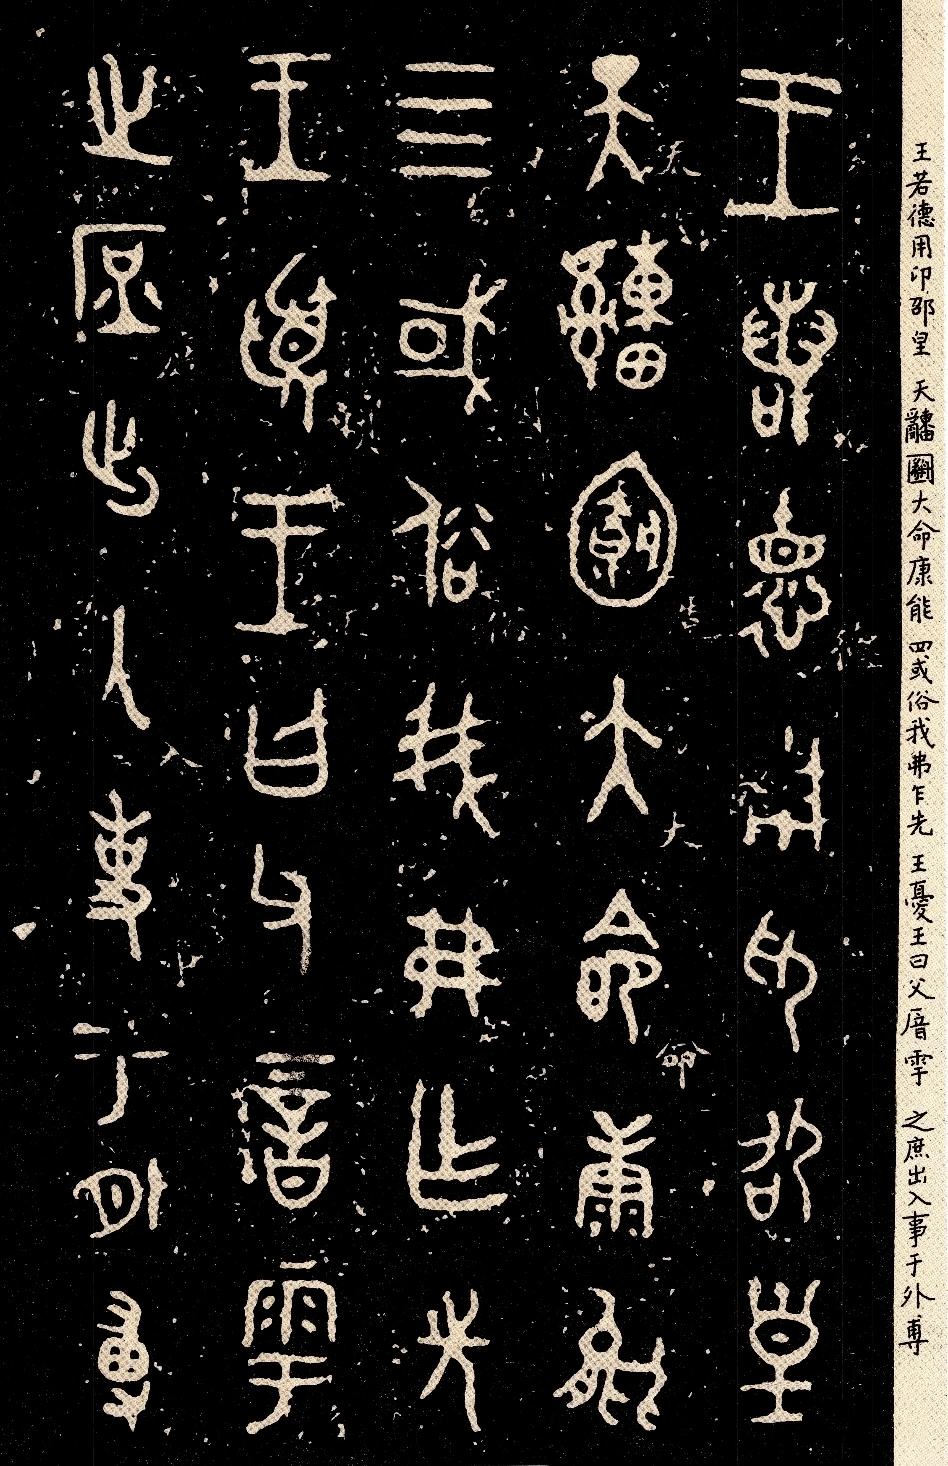 王若德用印邵皇 天 大命康能 四或俗我弗乍先 王憂王曰父厝雩 之庶出入事于外尃
王若德用印邵皇
天 大命康能
亖或俗我弗乍先
王憂王曰父厝雩
之庶出入事于外尃